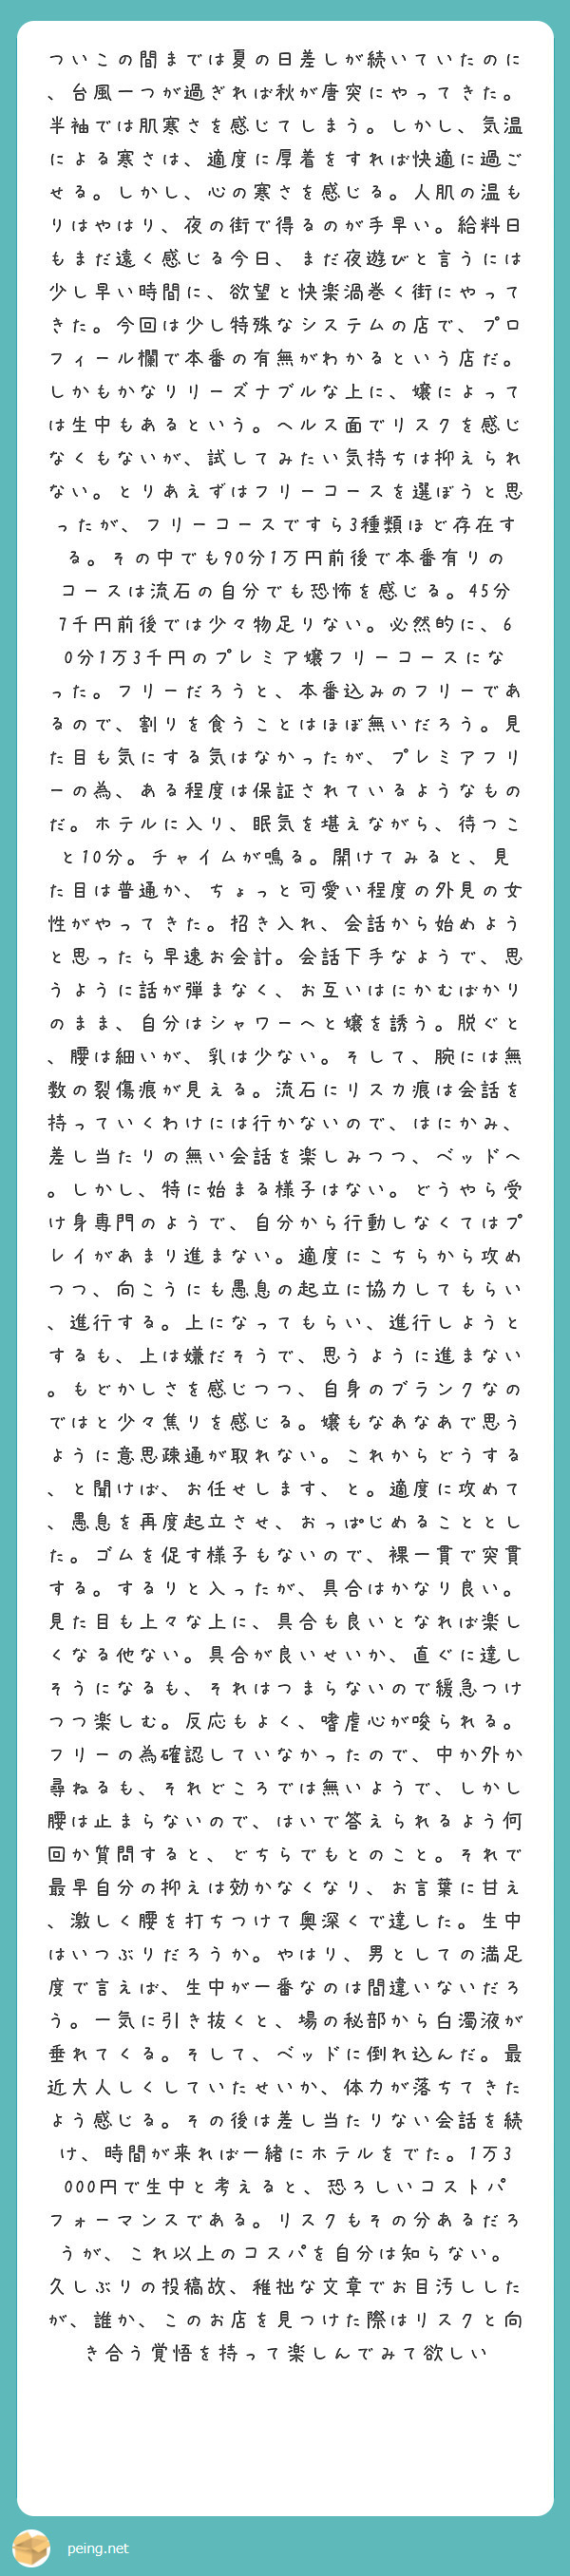 ついこの間までは夏の日差しが続いていたのに
、台風一つが過ぎれば秋が唐突にやってきた。
半袖では肌寒さを感じてしまう。しかし、気温
による寒さは、適度に厚着をすれば快適に過ご
せる。しかし、心の寒さを感じる。人肌の温も
りはやはり、夜の街で得るのが手早い。給料日
もまだ遠く感じる今日、まだ夜遊びと言うには
少し早い時間に、欲望と快楽渦巻く街にやって
きた。今回は少し特殊なシステムの店で、プロ
フィール欄で本番の有無がわかるという店だ。
しかもかなりリーズナブルな上に、嬢によって
は生中もあるという。ヘルス面でリスクを感じ
なくもないが、試してみたい気持ちは抑えられ
ない。とりあえずはフリーコースを選ぼうと思
ったが、フリーコースですら3種類ほど存在す
る。その中でも90分1万円前後で本番有りの
コースは流石の自分でも恐怖を感じる。45分
7千円前後では少々物足りない。必然的に、6
0分1万3千円のプレミア嬢フリーコースにな
った。フリーだろうと、本番込みのフリーであ
るので、割りを食うことはほぼ無いだろう。見
た目も気にする気はなかったが、プレミアフリ
ーの為、ある程度は保証されているようなもの
だ。ホテルに入り、眠気を堪えながら、待つこ
と10分。チャイムが鳴る。開けてみると、見
た目は普通か、ちょっと可愛い程度の外見の女
性がやってきた。招き入れ、会話から始めよう
と思ったら早速お会計。会話下手なようで、思
うように話が弾まなく、お互いはにかむばかり
のまま、自分はシャワーへと嬢を誘う。脱ぐと
、腰は細いが、乳は少ない。そして、腕には無
数の裂傷痕が見える。流石にリスカ痕は会話を
持っていくわけには行かないので、はにかみ、
差し当たりの無い会話を楽しみつつ、ベッドへ
。しかし、特に始まる様子はない。どうやら受
け身専門のようで、自分から行動しなくてはプ
レイがあまり進まない。適度にこちらから攻め
つつ、向こうにも愚息の起立に協力してもらい
、進行する。上になってもらい、進行しようと
するも、上は嫌だそうで、思うように進まない
。もどかしさを感じつつ、自身のブランクなの
ではと少々焦りを感じる。嬢もなあなあで思う
ように意思疎通が取れない。これからどうする
、と聞けば、お任せします、と。適度に攻めて
、愚息を再度起立させ、おっぱじめることとし
た。ゴムを促す様子もないので、裸一貫で突貫
する。するりと入ったが、具合はかなり良い。
見た目も上々な上に、具合も良いとなれば楽し
くなる他ない。具合が良いせいか、直ぐに達し
そうになるも、それはつまらないので緩急つけ
つつ楽しむ。反応もよく、嗜虐心が唆られる。
フリーの為確認していなかったので、中か外か
尋ねるも、それどころでは無いようで、しかし
腰は止まらないので、はいで答えられるよう何
回か質問すると、どちらでもとのこと。それで
最早自分の抑えは効かなくなり、お言葉に甘え
、激しく腰を打ちつけて奥深くで達した。生中
はいつぶりだろうか。やはり、男としての満足
度で言えば、生中が一番なのは間違いないだろ
う。一気に引き抜くと、場の秘部から白濁液が
垂れてくる。そして、ベッドに倒れ込んだ。最
近大人しくしていたせいか、体力が落ちてきた
よう感じる。その後は差し当たりない会話を続
け、時間が来れば一緒にホテルをでた。1万3
000円で生中と考えると、恐ろしいコストパ
フォーマンスである。リスクもその分あるだろ
うが、これ以上のコスパを自分は知らない。
久しぶりの投稿故、稚拙な文章でお目汚しした
が、誰か、このお店を見つけた際はリスクと向
き合う覚悟を持って楽しんでみて欲しい
peing.net